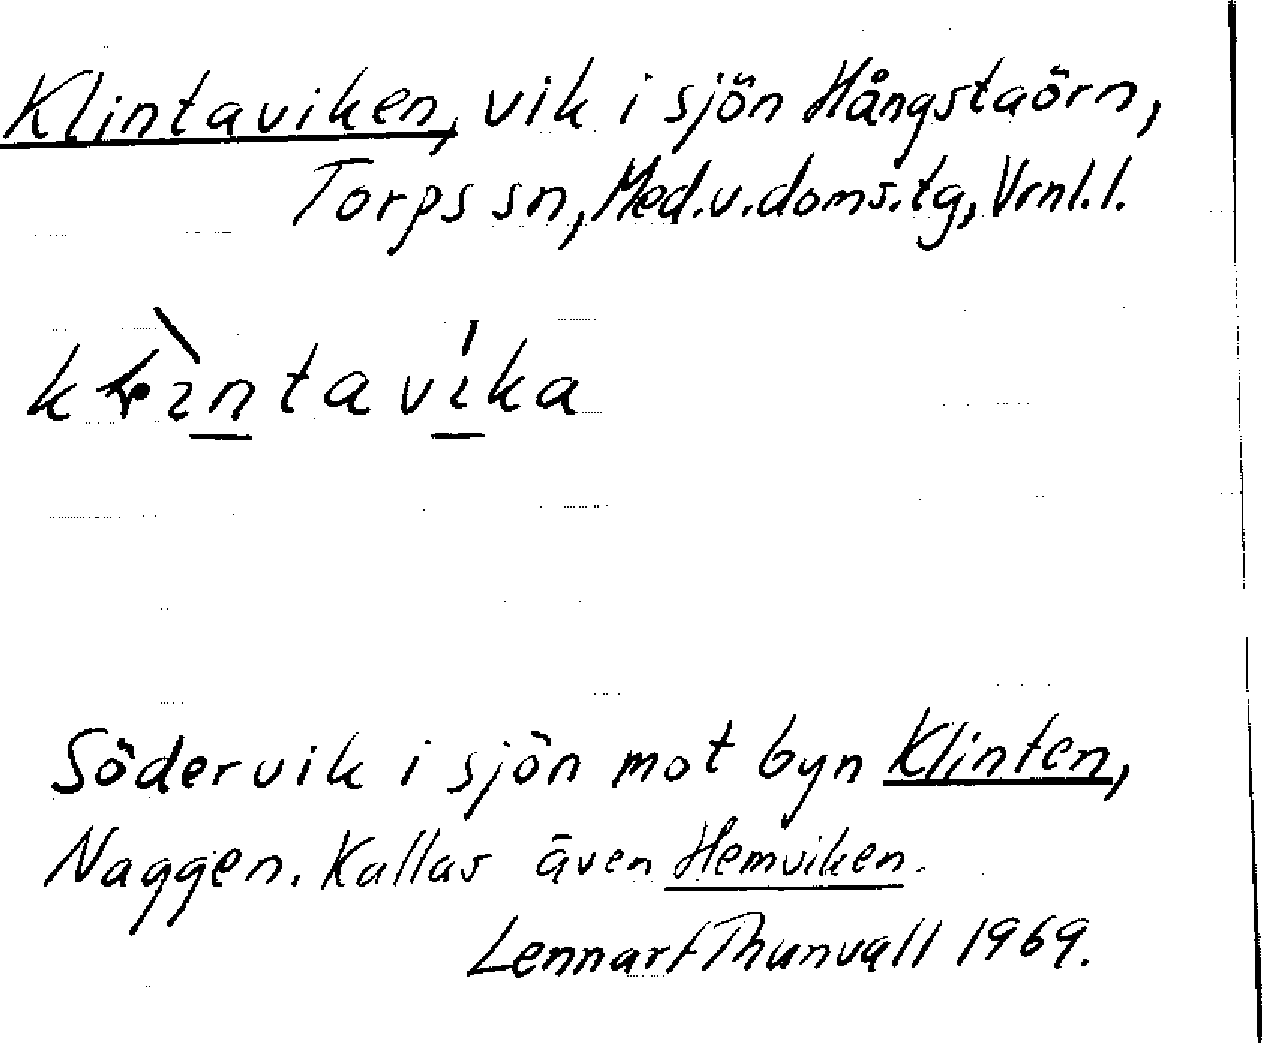 Klintaviken, vik i sjön Hångstaörn,
Torps sn, Med.v.doms.tg, Vrnl.l.
Södervik i sjön mot byn Klinten,
Naggen. Kallas även Hemviken.
Lennart Thunvall 1969.